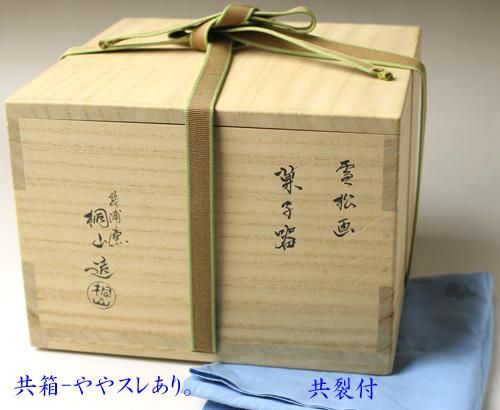 雪松画
菓子器
桐山造
桐山
共箱-ややスレあり。
共裂付